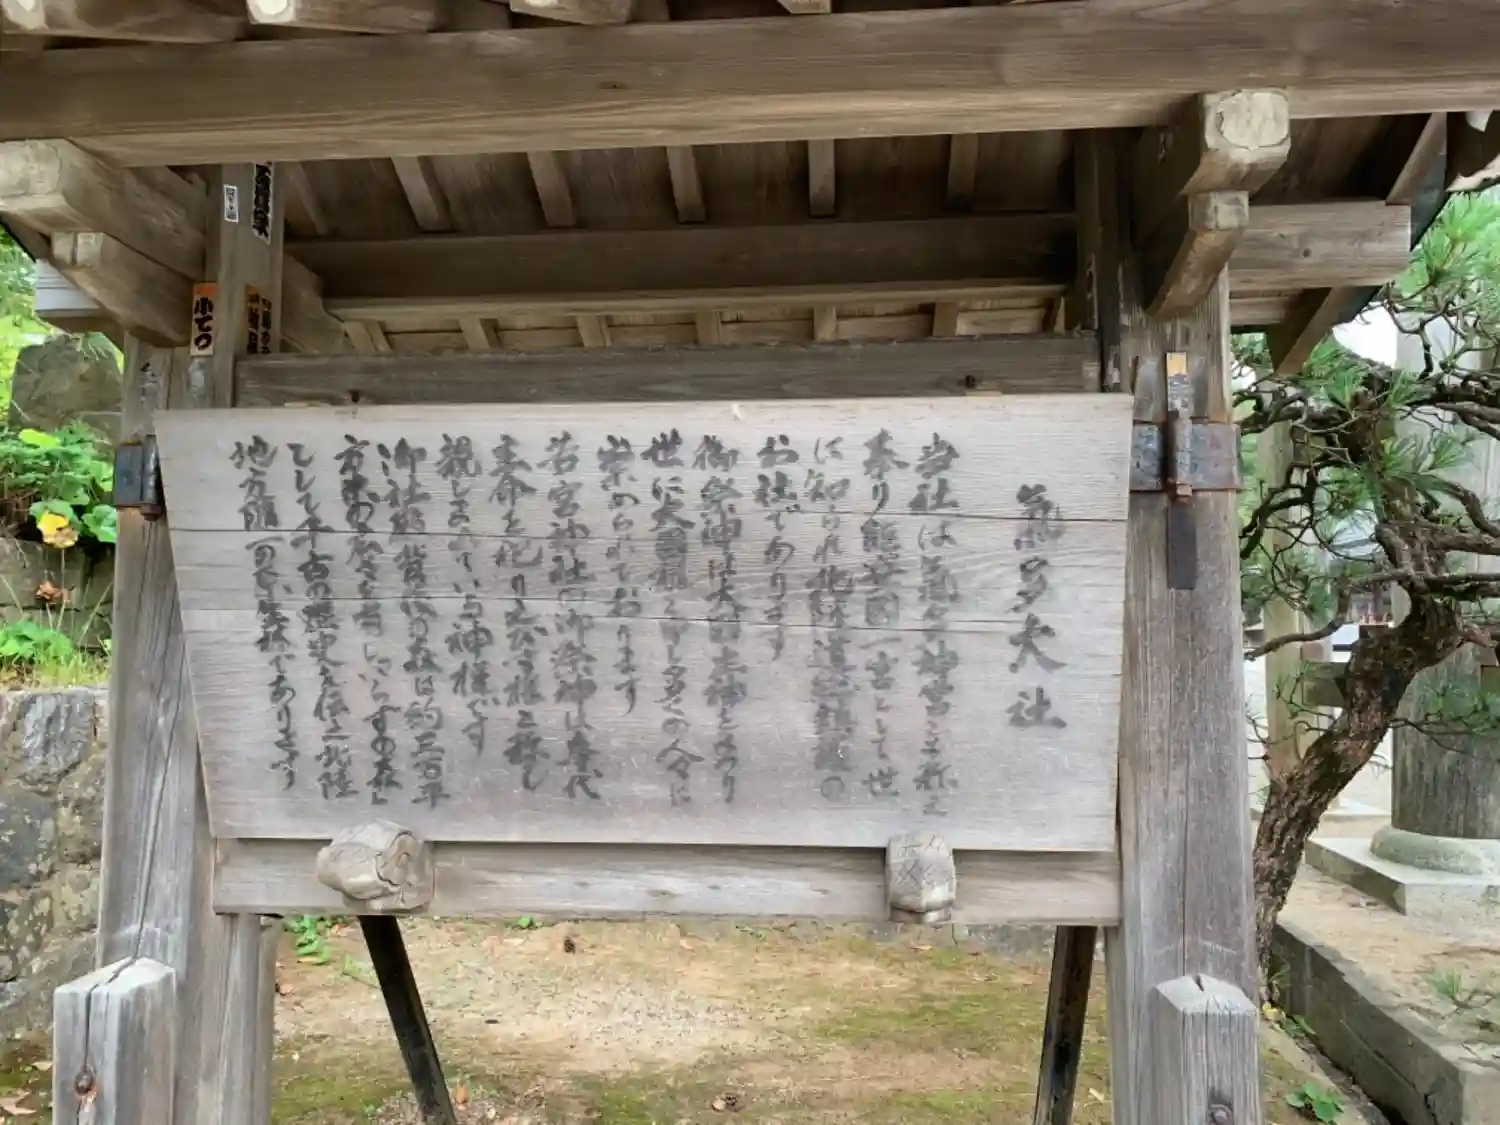 氣多大社
当社は氣多神宮とも称え
奉り能登国一宮として世
に知られ北陸道総鎮護の
お社であります
御祭神は大国主神と申し
世に大国様と申し多くの人々に
崇められております
若宮神社の御祭神は事代
主命を祀り えびす様と称し
親しまれている神様です
御社殿背後の森は約三万平
方米の広さを有し いらずの森と
して千古の歴史を伝え北陸
地方随一の 森でありま す
小てつ